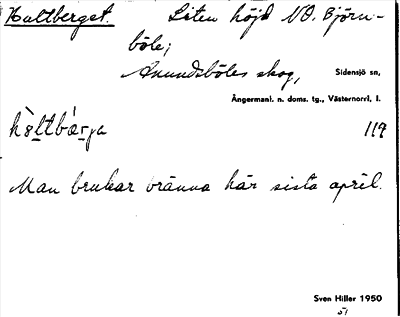 Haltberget. Liten höjd NO. Björn-
böle;
Anundsböles skog, Sidensjö sn,
Ångermanl. n. doms. tg., Västernorrl. l.
hàltbæ̀rjа 119
Man brukar bränna här sista april.
Sven Hiller 1950
51